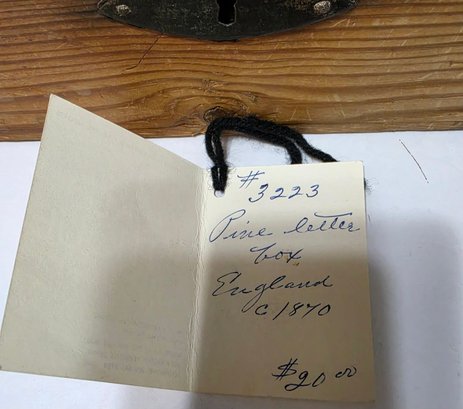 # 3223
Pine letter
box
England
c 1870
$20.00